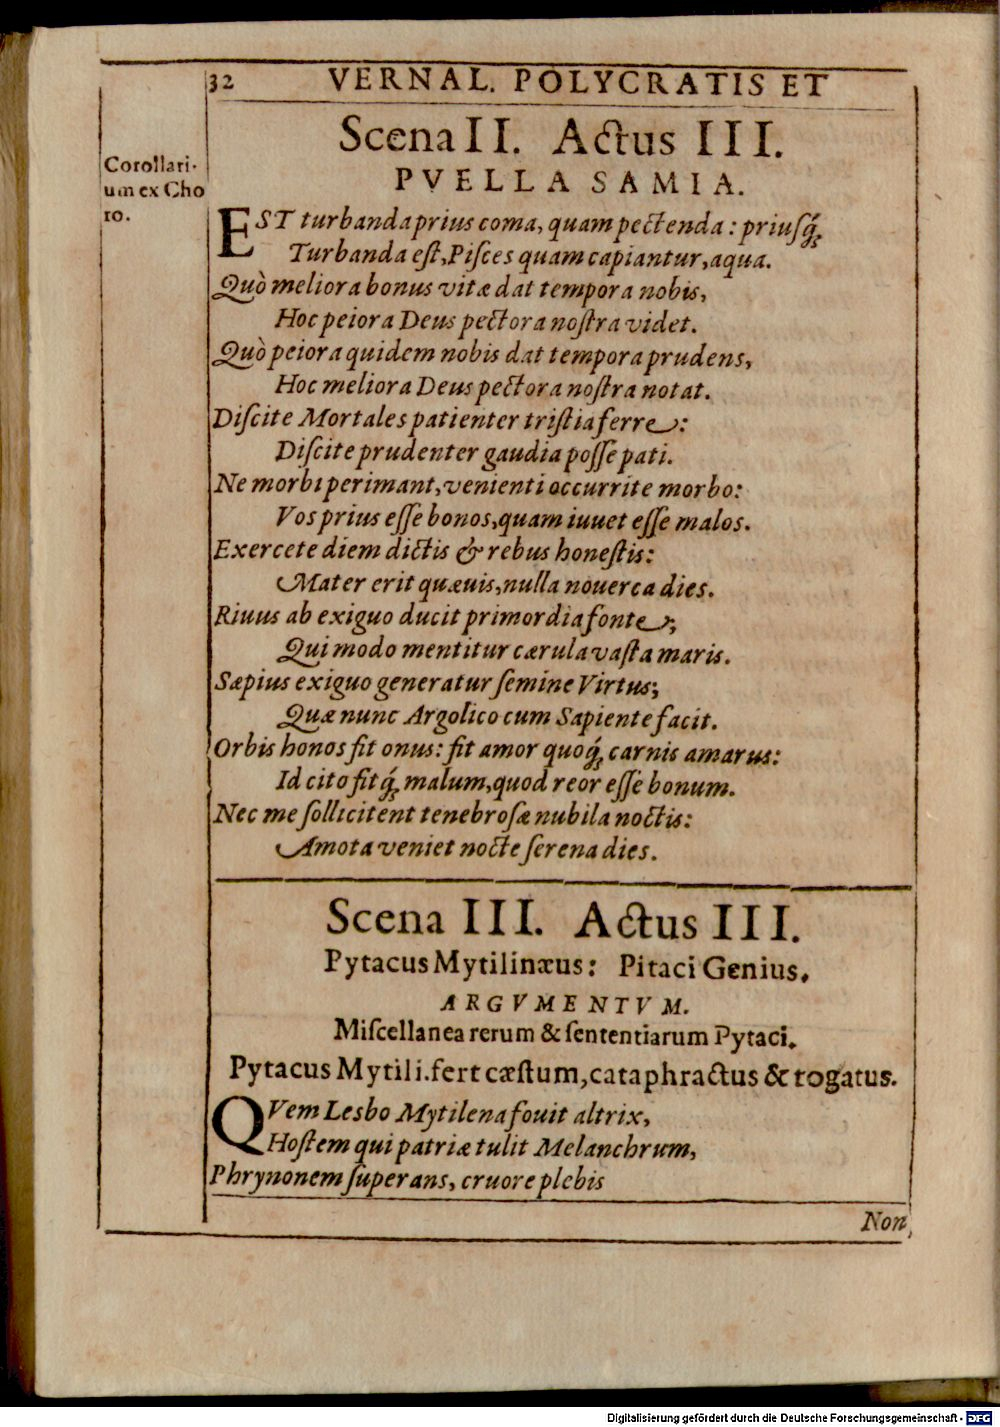 32 VERNAL. POLYCRATIS ET
Scena II. Actus III.
PVELLA SAMIA.
Corollari-
um ex Cho
10.
EST turbanda prius coma, quam pectenda: priusq́;
Turbanda est, Pisces quam capiantur, aqua.
Quò meliora bonus vitæ dat tempora nobis,
Hoc peiora Deus pectora nostra videt.
Quò peiora quidem nobis dat tempora prudens,
Hoc meliora Deus pectora nostra notat.
Discite Mortales patienter tristia ferre:
Discite prudenter gaudia posse pati.
Ne morbi perimant, venienti occurrite morbo:
Vos prius esse bonos, quam iuuet esse malos.
Exercete diem dictis & rebus honestis:
Mater erit quæuis, nulla nouerca dies.
Riuus ab exiguo ducit primordia fonte;
Qui modo mentitur cærula vasta maris.
Sæpius exiguo generatur semine Virtus;
Quæ nunc Argolico cum Sapiente facit.
Orbis honos fit onus: fit amor quoq́; carnis amarus:
Id cito fitq́; malum, quod reor esse bonum.
Nec me sollicitent tenebrosæ nubila noctis:
Amota veniet nocte serena dies.
Scena III. Actus III.
Pytacus Mytilinæus: Pitaci Genius.
ARGVMENTVM.
Miscellanea rerum & sententiarum Pytaci.
Pytacus Mytili. fert cæstum, cataphractus & togatus.
QVem Lesbo Mytilena fouit altrix,
Hostem qui patriæ tulit Melanchrum,
Phrynonem superans, cruore plebis
Non
Digitalisierung gefördert durch die Deutsche Forschungsgemeinschaft - DFG